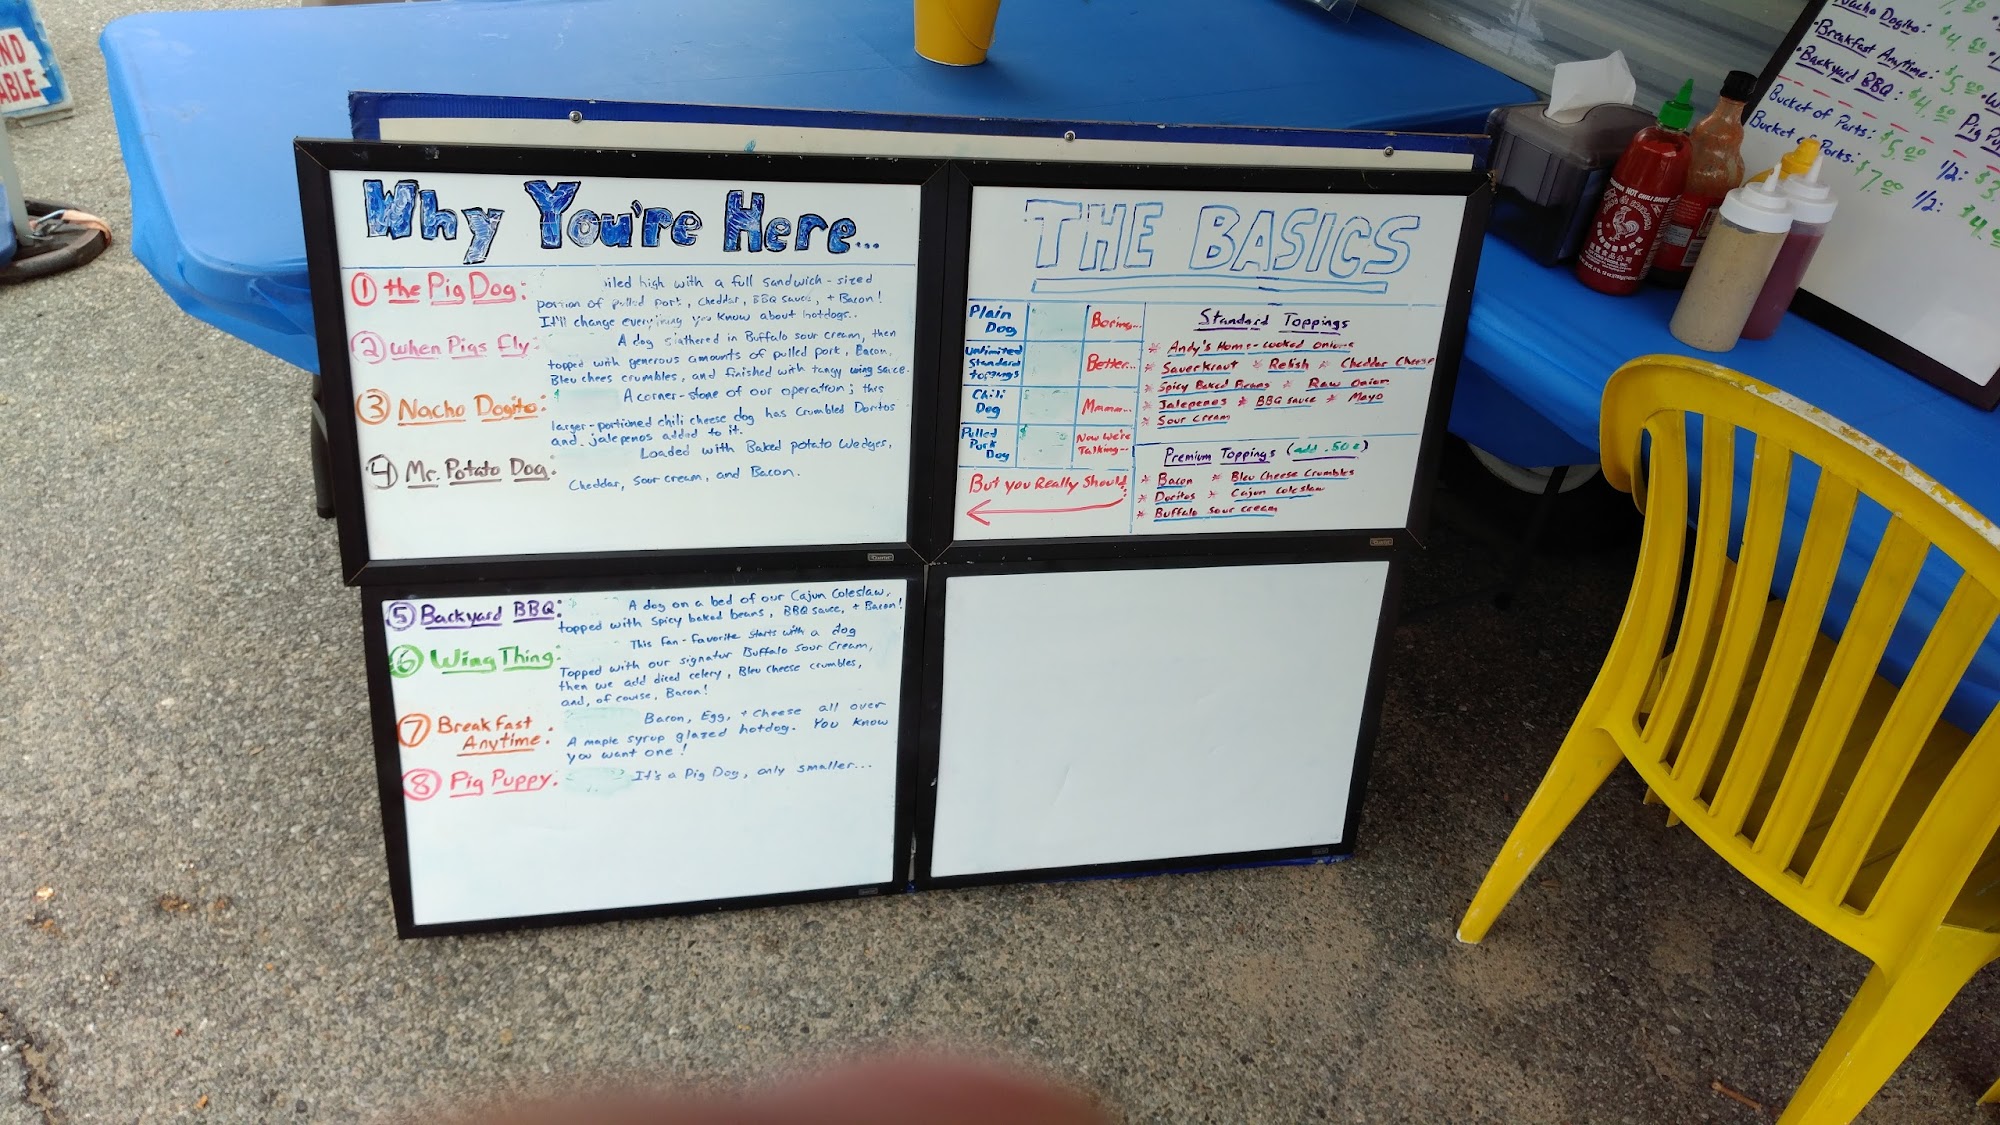 ND
ABLE
Why You're Here...
① the Pig Dog:
iled high with a full sandwich-sized
portion of pulled pork, cheddar, BBQ sauce, + Bacon!
It'll change everything you know about hotdogs..
② When Pigs Fly:
A dog slathered in Buffalo sour cream, then
topped with generous amounts of pulled pork, Bacon,
Bleu chees crumbles, and finished with tangy wing sauce.
③ Nacho Dogito:
A corner-stone of our operation; this
larger-portioned chili cheese dog has crumbled Doritos
and jalepenos added to it.
④ Mr. Potato Dog:
Loaded with Baked potato wedges,
Cheddar, sour cream, and Bacon.
⑤ Backyard BBQ:
A dog on a bed of our Cajun Coleslaw,
topped with spicy baked beans, BBQ sauce, + Bacon!
⑥ Wing Thing:
This fan-favorite starts with a dog
Topped with our signatur Buffalo Sour Cream,
then we add diced celery, Bleu Cheese crumbles,
and, of course, Bacon!
⑦ Breakfast
Anytime:
Bacon, Egg, + cheese all over
A maple syrup glazed hotdog. You know
you want one!
⑧ Pig Puppy:
It's a Pig Dog, only smaller...
THE BASICS
Plain
Dog
Boring...
Unlimited
Standard
toppings
Better...
Chili
Dog
Mmmm...
Pulled
Pork
Dog
Now we're
Talking...
But you Really Should:
Standard Toppings
* Andy's Home-cooked onions
* Sauerkraut * Relish * Cheddar Cheese
* Spicy Baked Beans * Raw Onion
* Jalepenos * BBQ sauce * Mayo
* Sour cream
Premium Toppings (add .50¢)
* Bacon * Bleu Cheese Crumbles
* Doritos * Cajun coleslaw
* Buffalo sour cream
Nacho Dogito: $4.
• Breakfast Anytime: $5.
• Backyard BBQ: $4.
Bucket of Parts: $5.00 1/2: $3.
Bucket of Porks: $7.00 1/2: $4.